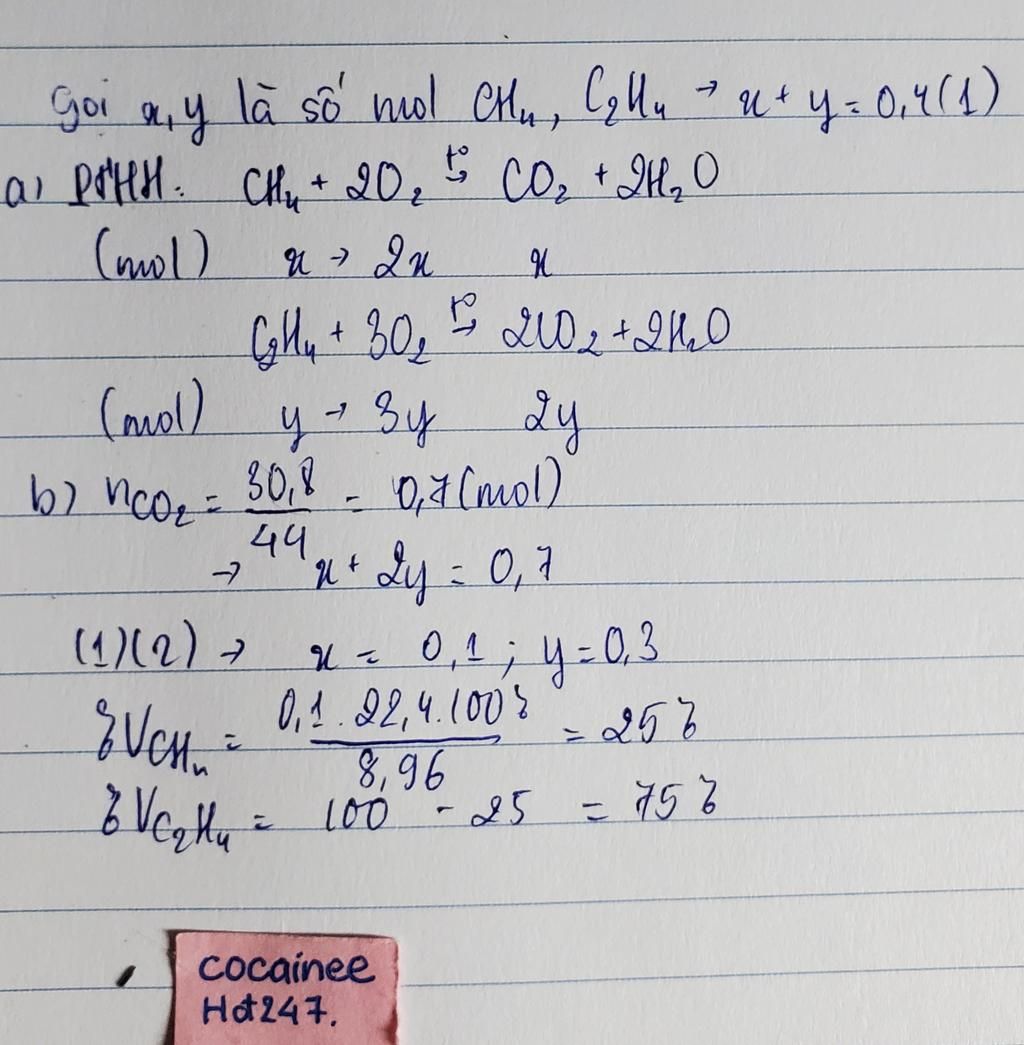 Gọi x, y là số mol CH₄, C₂H₄ → x + y = 0,4 (1)
a) PTHH: CH₄ + 2O₂ t°→ CO₂ + 2H₂O
(mol) x → 2x x
C₂H₄ + 3O₂ t°→ 2CO₂ + 2H₂O
(mol) y → 3y 2y
b) nCO₂ = 30,8/44 = 0,7 (mol)
→ x + 2y = 0,7
(1)(2) → x = 0,1 ; y = 0,3
%VCH₄ = 0,1 . 22,4 . 100%/8,96 = 25%
%VC₂H₄ = 100 - 25 = 75%
cocainee
Hot247.